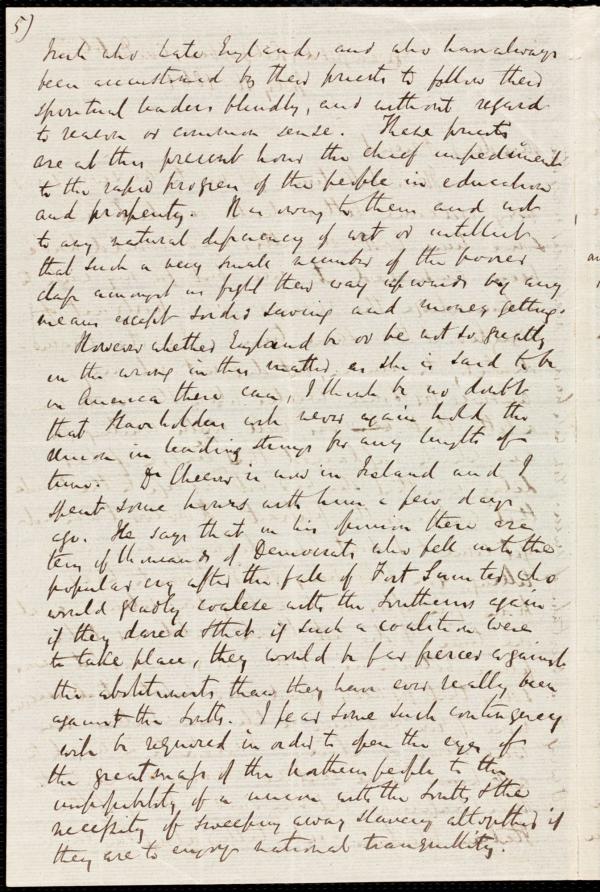 5)
Irish who hate England, and who have always
been accustomed by their priests to follow their
spiritual leaders blindly, and without regard
to reason or common sense. These priests
are at this present hour the chief impediment
to the rapid progress of the people in education
and prosperity. It is owing to them and not
to any natural deficiency of wit or intellect
that such a very small number of the poorer
class amongst us fight their way upwards by any
means except sordid saving and money getting.
However whether England be or be not so greatly
in the wrong in this matter as she is said to be
in America there can, I think be no doubt
that slaveholders will never again hold the
Union in leading strings for any length of
time. Dr Cheever is now in Ireland and I
spent some hours with him a few days
ago. He says that in his opinion there are
tens of thousands of Democrats who fell into the
popular cry after the fall of Fort Sumter who
would gladly coalesce with the Southerners again
if they dared & that if such a coalition were
to take place, they would be far fiercer against
the abolitionists than they have ever really been
against the South. I fear some such contingency
will be required in order to open the eyes of
the great mass of the Northern people to the
impossibility of a union with the South & the
necessity of sweeping away slavery altogether if
they are to enjoy national tranquillity.